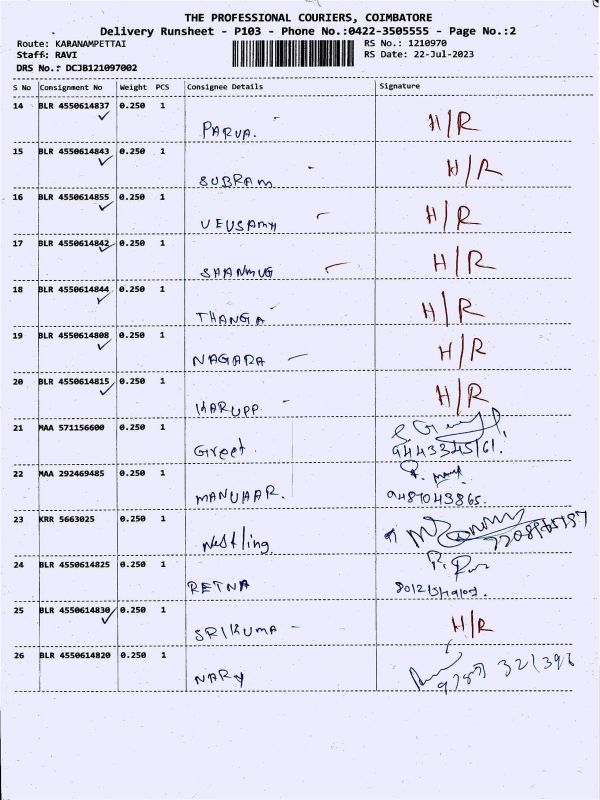 THE PROFESSIONAL COURIERS, COIMBATORE
Delivery Runsheet - P103 - Phone No.:0422-3505555 - Page No.:2
Route: KARANAMPETTAI RS No.: 1210970
Staff: RAVI RS Date: 22-Jul-2023
DRS No.: DCJB121097002
S No Consignment No Weight PCS Consignee Details Signature
14 BLR 4550614837 0.250 1
PARVA. H/R
15 BLR 4550614843 0.250 1
SUBRAM H/R
16 BLR 4550614855 0.250 1
VEUSAMY H/R
17 BLR 4550614842 0.250 1
SHANMUG H/R
18 BLR 4550614844 0.250 1
THANGA H/R
19 BLR 4550614808 0.250 1
NAGARA H/R
20 BLR 4550614815 0.250 1
KARUPP H/R
21 MAA 571156600 0.250 1
Greet.
22 MAA 292469485 0.250 1
MANUHAR. 9487043865.
23 KRR 5663025 0.250 1
Nestling
24 BLR 4550614825 0.250 1
RETNA
25 BLR 4550614830 0.250 1
SRIKUMA H/R
26 BLR 4550614820 0.250 1
NARY